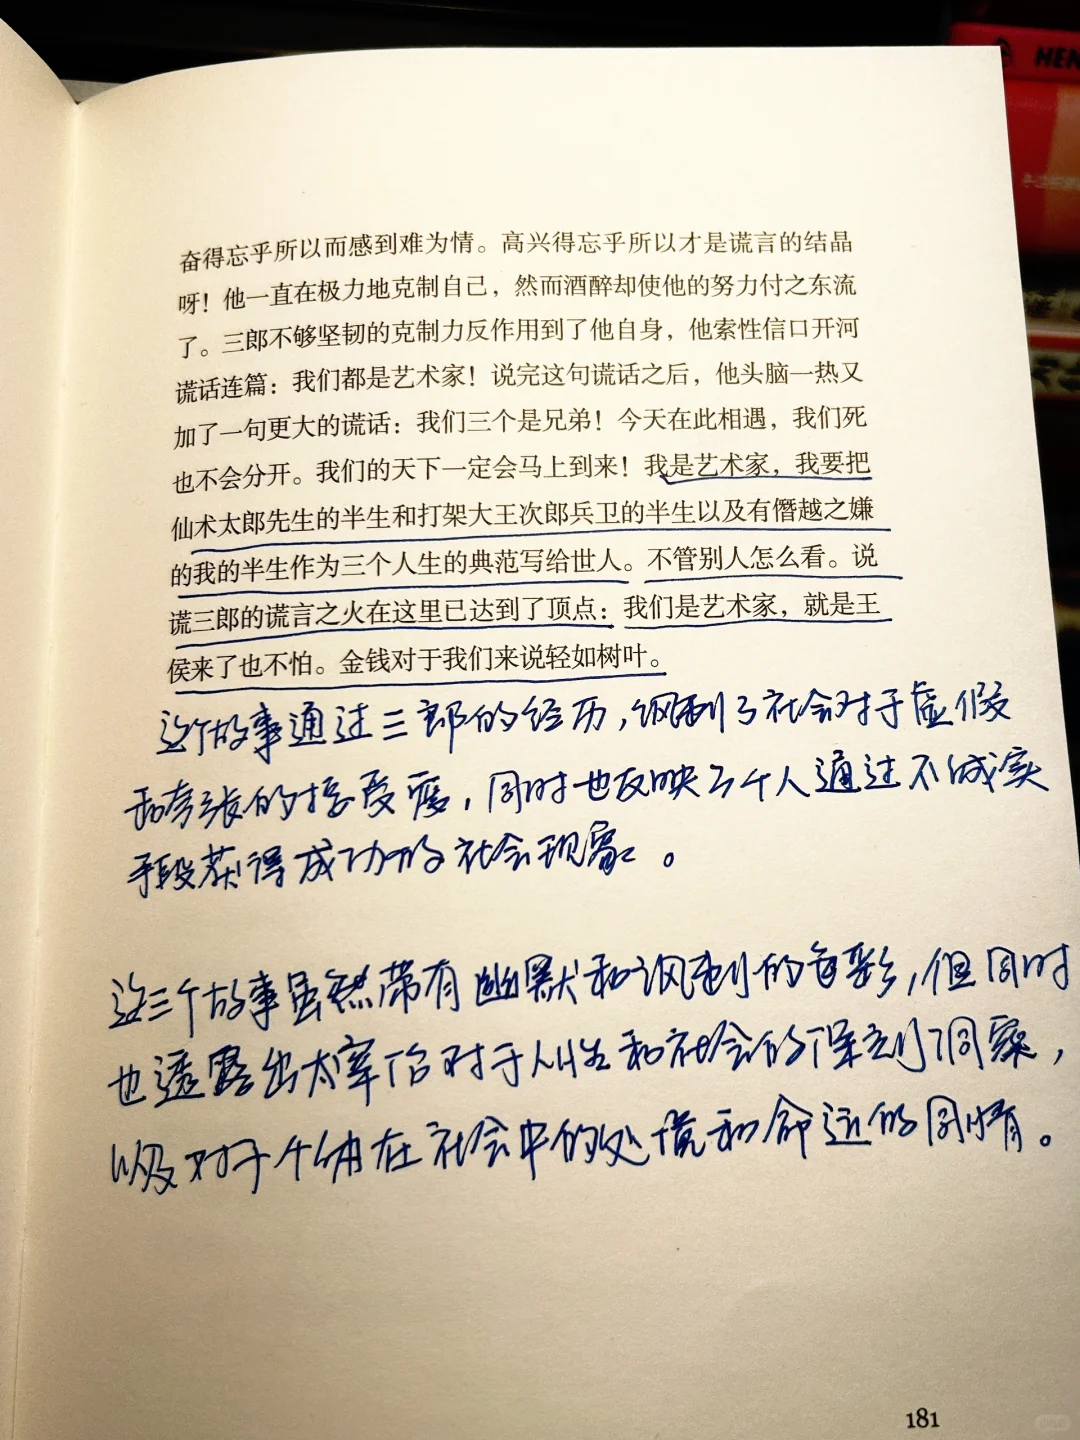 HEN
奋得忘乎所以而感到难为情。高兴得忘乎所以才是谎言的结晶
呀！他一直在极力地克制自己，然而酒醉却使他的努力付之东流
了。三郎不够坚韧的克制力反作用到了他自身，他索性信口开河
谎话连篇：我们都是艺术家！说完这句谎话之后，他头脑一热又
加了一句更大的谎话：我们三个是兄弟！今天在此相遇，我们死
也不会分开。我们的天下一定会马上到来！我是艺术家，我要把
仙术太郎先生的半生和打架大王次郎兵卫的半生以及有僭越之嫌
的我的半生作为三个人生的典范写给世人。不管别人怎么看。说
谎三郎的谎言之火在这里已达到了顶点：我们是艺术家，就是王
侯来了也不怕。金钱对于我们来说轻如树叶。
这个故事通过三郎的经历，讽刺了社会对于虚假
和夸张的接受度，同时也反映了个人通过不诚实
手段获得成功的社会现象。
这三个故事虽然带有幽默和讽刺的色彩，但同时
也透露出太宰治对于人生和社会的深刻洞察，
以及对于个体在社会中的处境和命运的同情。
181